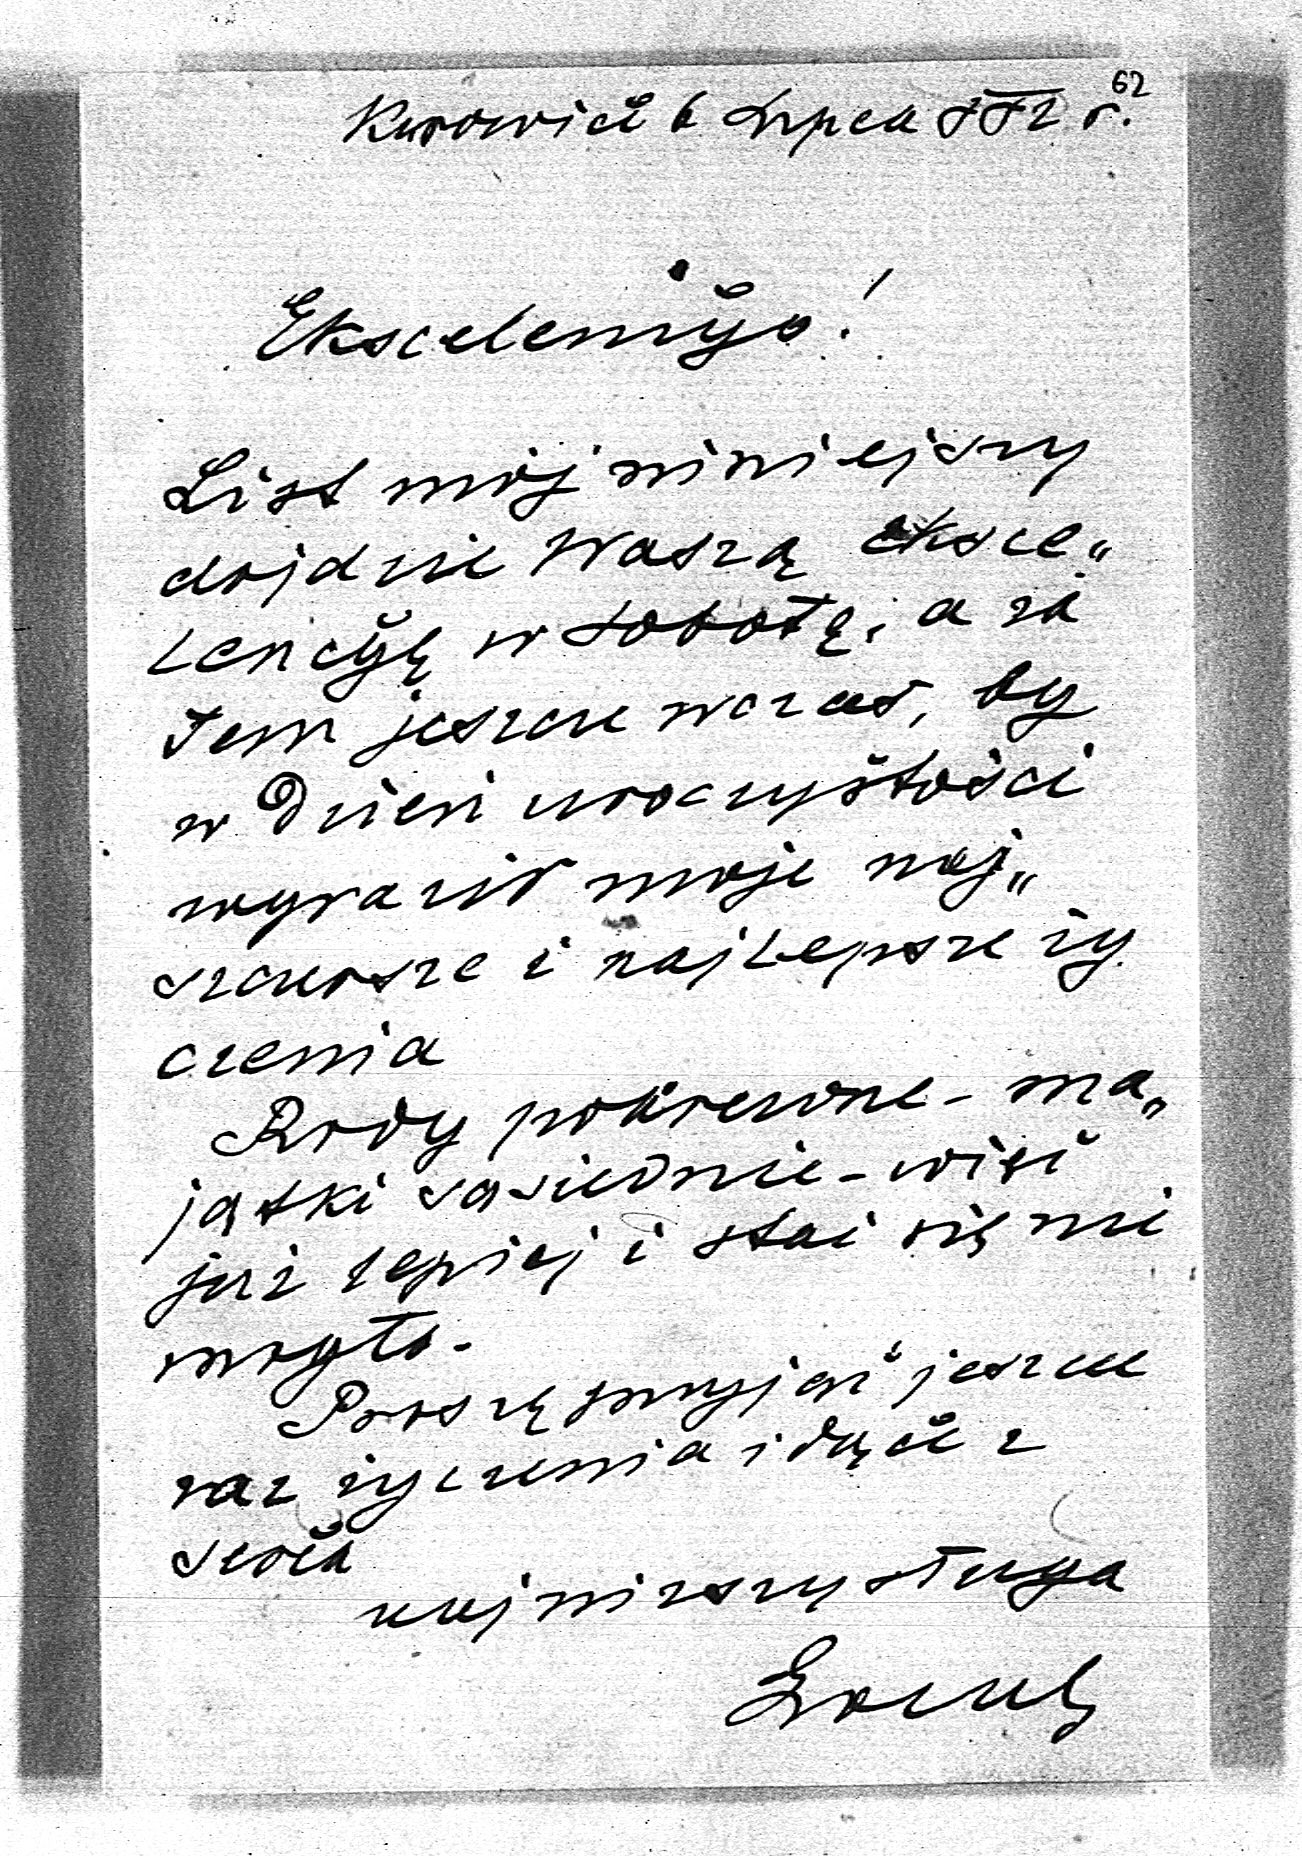 62
6 Lipca r.
Ekscelencyjo!
List mój niniejszy
dojdzie Waszą eksce„
lencyję w sobotę, a za
tem jeszcze wczas, by
w dzień uroczystości
wyrazić moje naj„
szczersze i najlepsze ży
czenia
Rody pokrewne - ma„
jątki sąsiednie - więc
już lepiej i stać się nie
mogło.
Proszę przyjąć jeszcze
raz życzenia idące z
serca
najniższy sługa